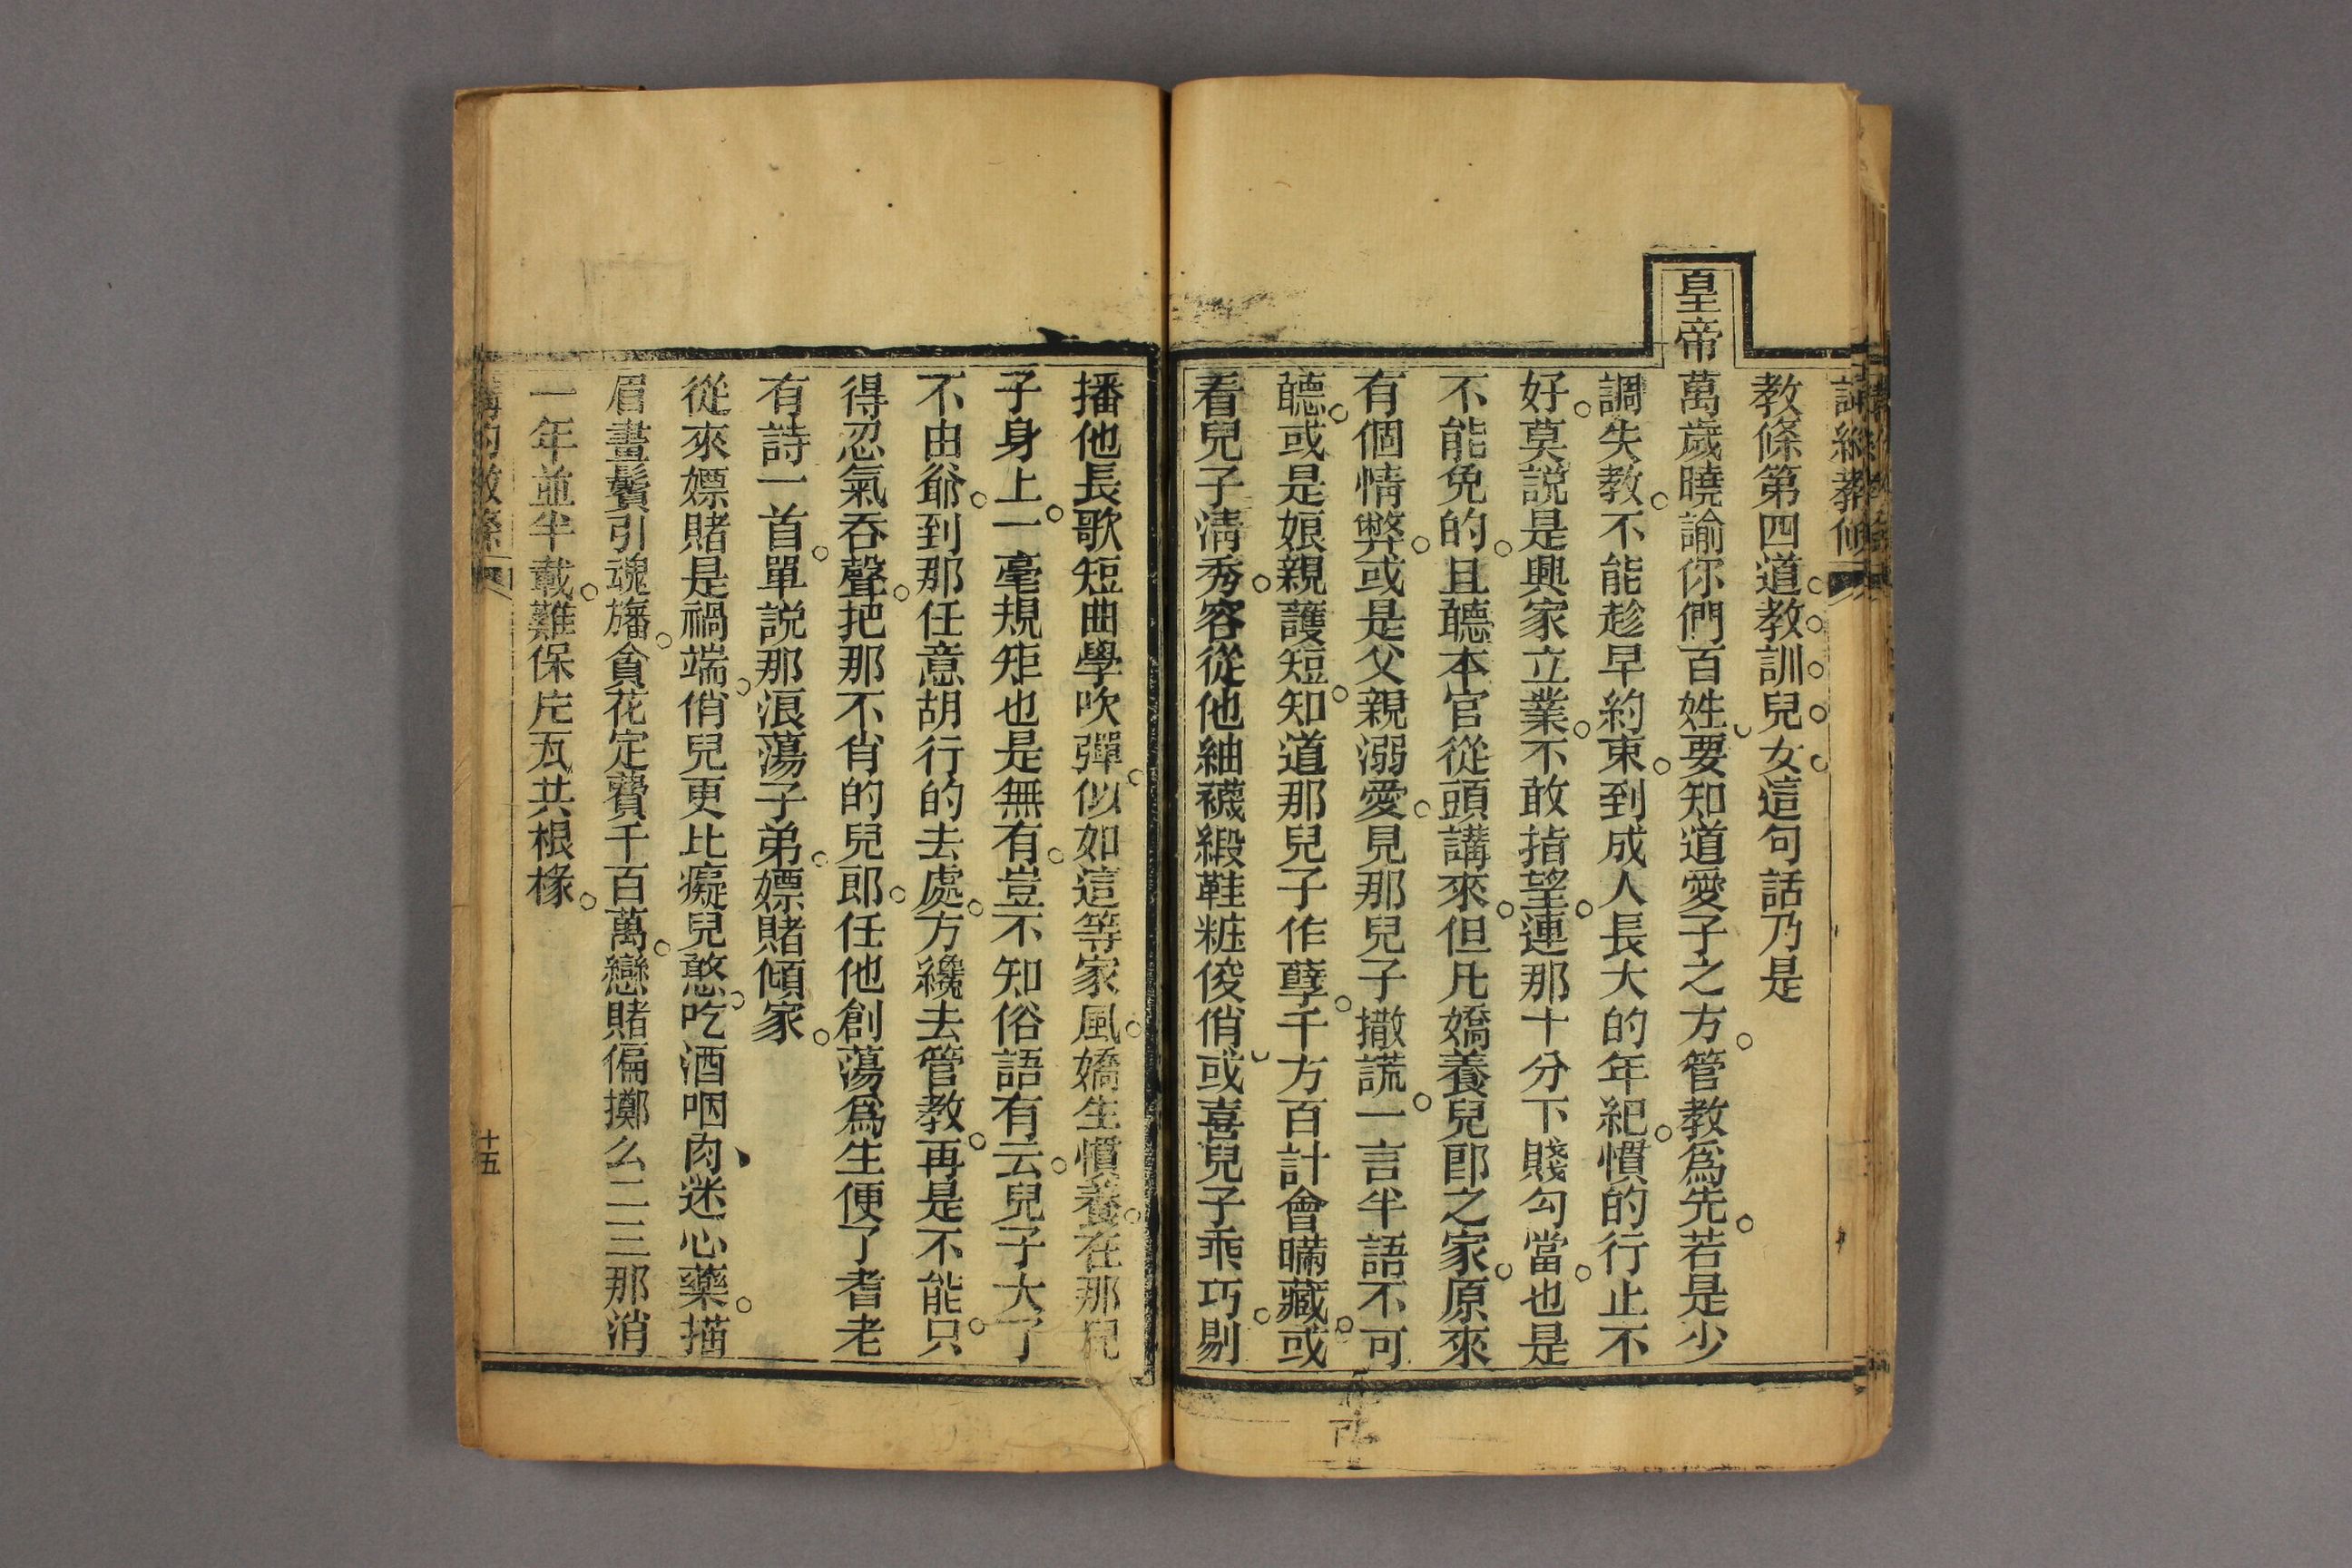 教條第四道。教。訓。兒。女。這句話乃是
皇帝萬歲曉諭你們百姓。要知道愛子之方。管教爲先。若是少
調失教。不能趁早約束。到成人長大的年紀。慣的行止不
好。莫説是興家立業。不敢指望。連那十分下賤勾當。也是
不能免的。且聽本官從頭講來。但凡嬌養兒郎之家。原來
有個情弊。或是父親溺愛。見那兒子撒謊。一言半語不可
聽。或是娘親護短。知道那兒子作孽。千方百計會瞞藏。或
看兒子清秀。容從他紬襪緞鞋粧俊俏。或喜兒子乖巧。剔
播他長歌短曲學吹彈。似如這等家風。嬌生慣養。在那兒
子身上。一毫規矩也是無有。豈不知俗語有云。兒子大了
不由爺。到那任意胡行的去處。方纔去管教。再是不能。只
得忍氣吞聲。把那不肖的兒郎。任他創蕩爲生便了耆老
有詩一首。單説那浪蕩子弟。嫖賭傾家。
從來嫖賭是禍端。俏兒更比癡兒憨。吃酒咽肉迷心藥。描
眉畫鬢引魂旛。貪花定費千百萬。戀賭偏擲么二三那消
一年並半載。難保庀瓦共根椽。
講約教條
十五